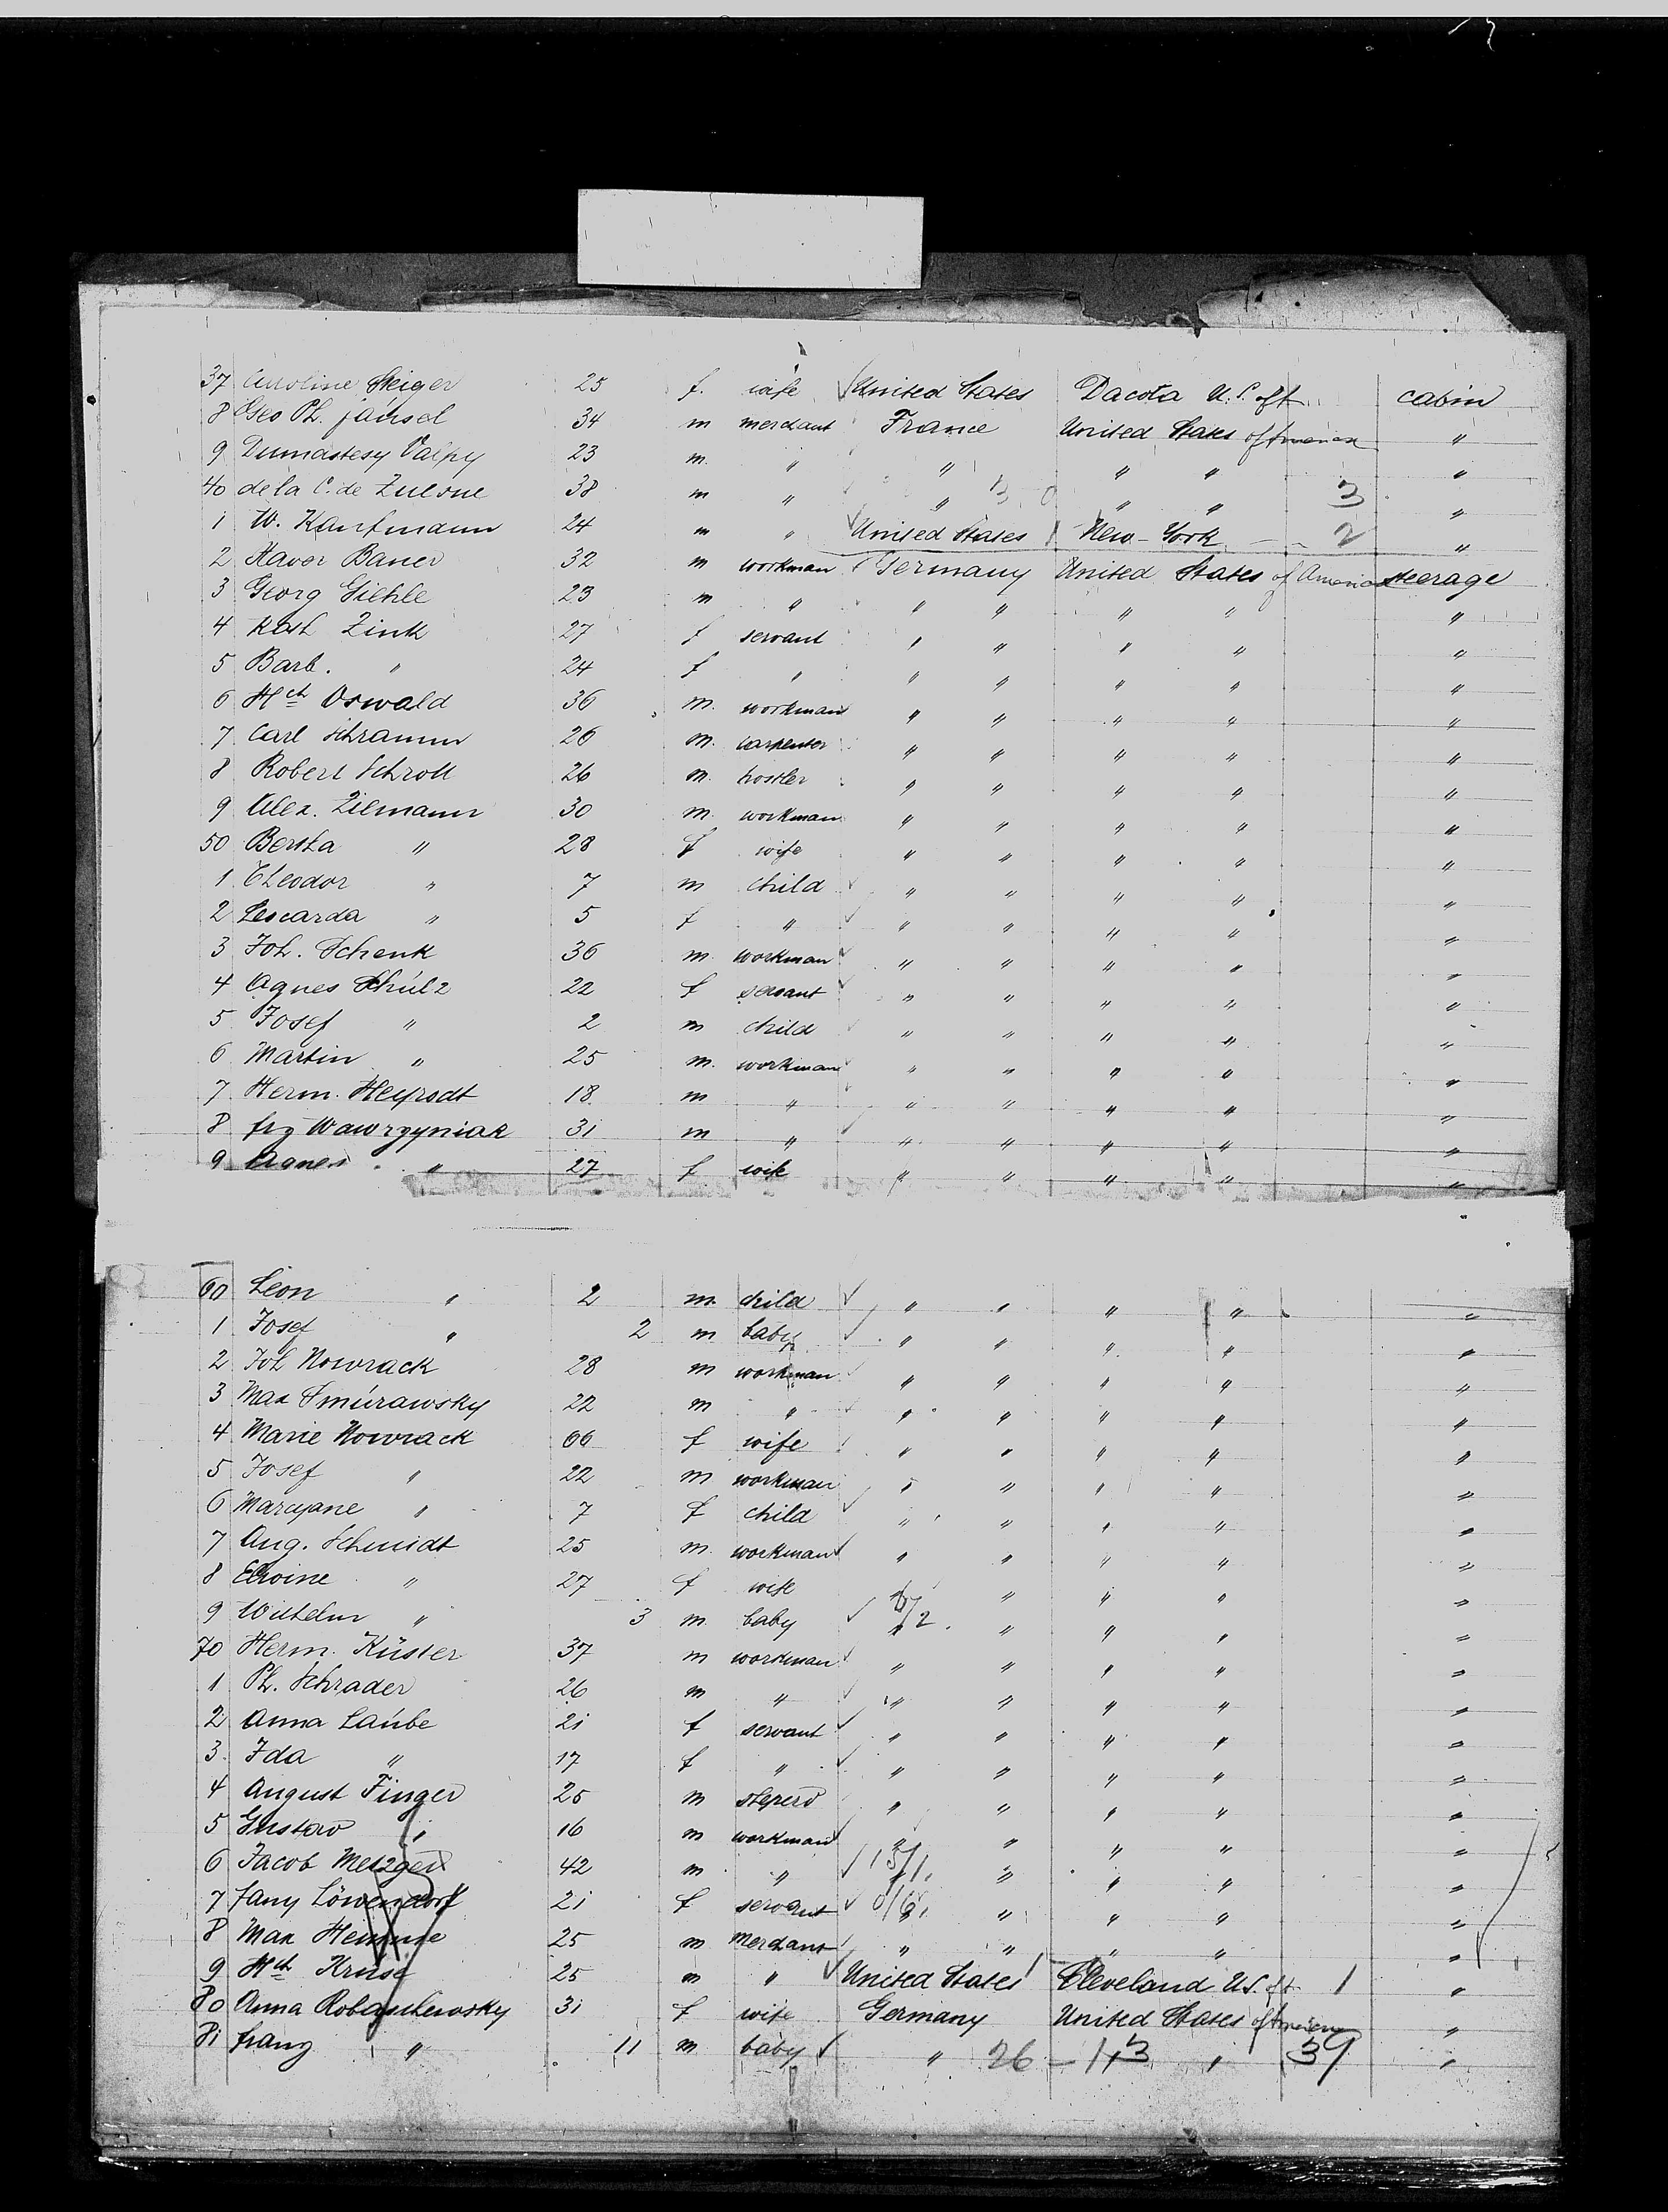 37 Caroline Steiger 25 f. wife United States Dacota U.S. of A. cabin
8 Geo Ph. Jansel 34 m merchant France United States of America "
9 Dumastesy Valpy 23 m. " " " " "
40 de la C. de Zulove 38 m " " 3 0 " " 3 "
1 W. Kaufmann 24 m " United States New-York 2 "
2 Xaver Bauer 32 m workman Germany United States of America steerage
3 Georg Giehle 23 m " " " " " "
4 Kath Zink 27 f servant " " " " "
5 Barb. " 24 f " " " " " "
6 Hch Oswald 36 m. workman " " " " "
7 Carl Schramm 26 m. carpenter " " " " "
8 Robert Schroll 26 m. hostler " " " " "
9 Alex. Zilmann 30 m. workman " " " " "
50 Bertha " 28 f wife " " " " "
1 Theodor " 7 m child " " " " "
2 Leocarda " 5 f " " " " " "
3 Joh. Schenk 36 m. workman " " " " "
4 Agnes Schulz 22 f servant " " " " "
5 Josef " 2 m child " " " " "
6 Martin " 25 m. workman " " " " "
7 Herm. Heyrodt 18 m " " " " " "
8 frz Wawrzyniak 31 m " " " " " "
9 Agnes " 27 f wife " " " " "
60 Leon " 2 m. child " " " " "
1 Josef " 2 m baby " " " " "
2 Joh Nowrack 28 m workman " " " " "
3 Max Smurawsky 22 m " " " " " "
4 Marie Nowrack 66 f wife " " " " "
5 Josef " 22 m workman " " " " "
6 Maryane " 7 f child " " " " "
7 Aug. Schmidt 25 m. workman " " " " "
8 " 27 f wife " " " "
9 Wilhelm " 3 m. baby /2 " " " " "
70 Herm. Küster 37 m workman " " " " "
1 Ph. Schrader 26 m " " " " " "
2 Anna Laube 21 f servant " " " " "
3. Ida " 17 f " " " " " "
4 August Finger 25 m steperd " " " " "
5 Gustav " 16 m workman " " " " "
6 Jacob Metzger 42 m " 13/1. " " " " "
7 fany Löwendorf 21 f servant 0/6. " " " " "
8 Max Hemme 25 m merchant " " " " "
9 Hch Kruse 25 m " United States Cleveland U.S. of A. 1 "
80 Anna Robaschewsky 31 f wife Germany United States of America "
81 franz " 11 m baby " 26 - 1,3 " 39 "